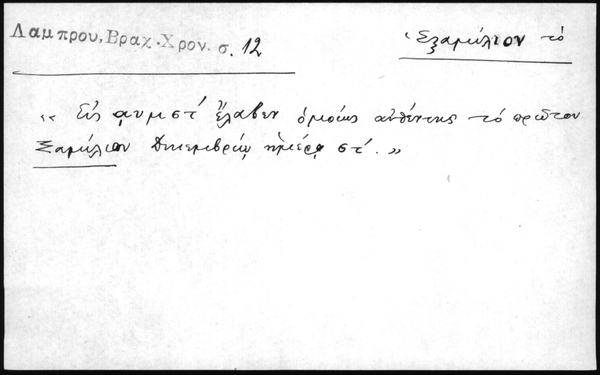 Λαμπρου, Βραχ. Χρον. σ. 12
Ἑξαμίλιον τό
« Εἰς ͵αυμστ´ ἔλαβεν ὁμοίως αὐθέντης τό πρῶτον
Ξαμίλιον Δικεμβρίῳ ἡμέρᾳ στ´. »